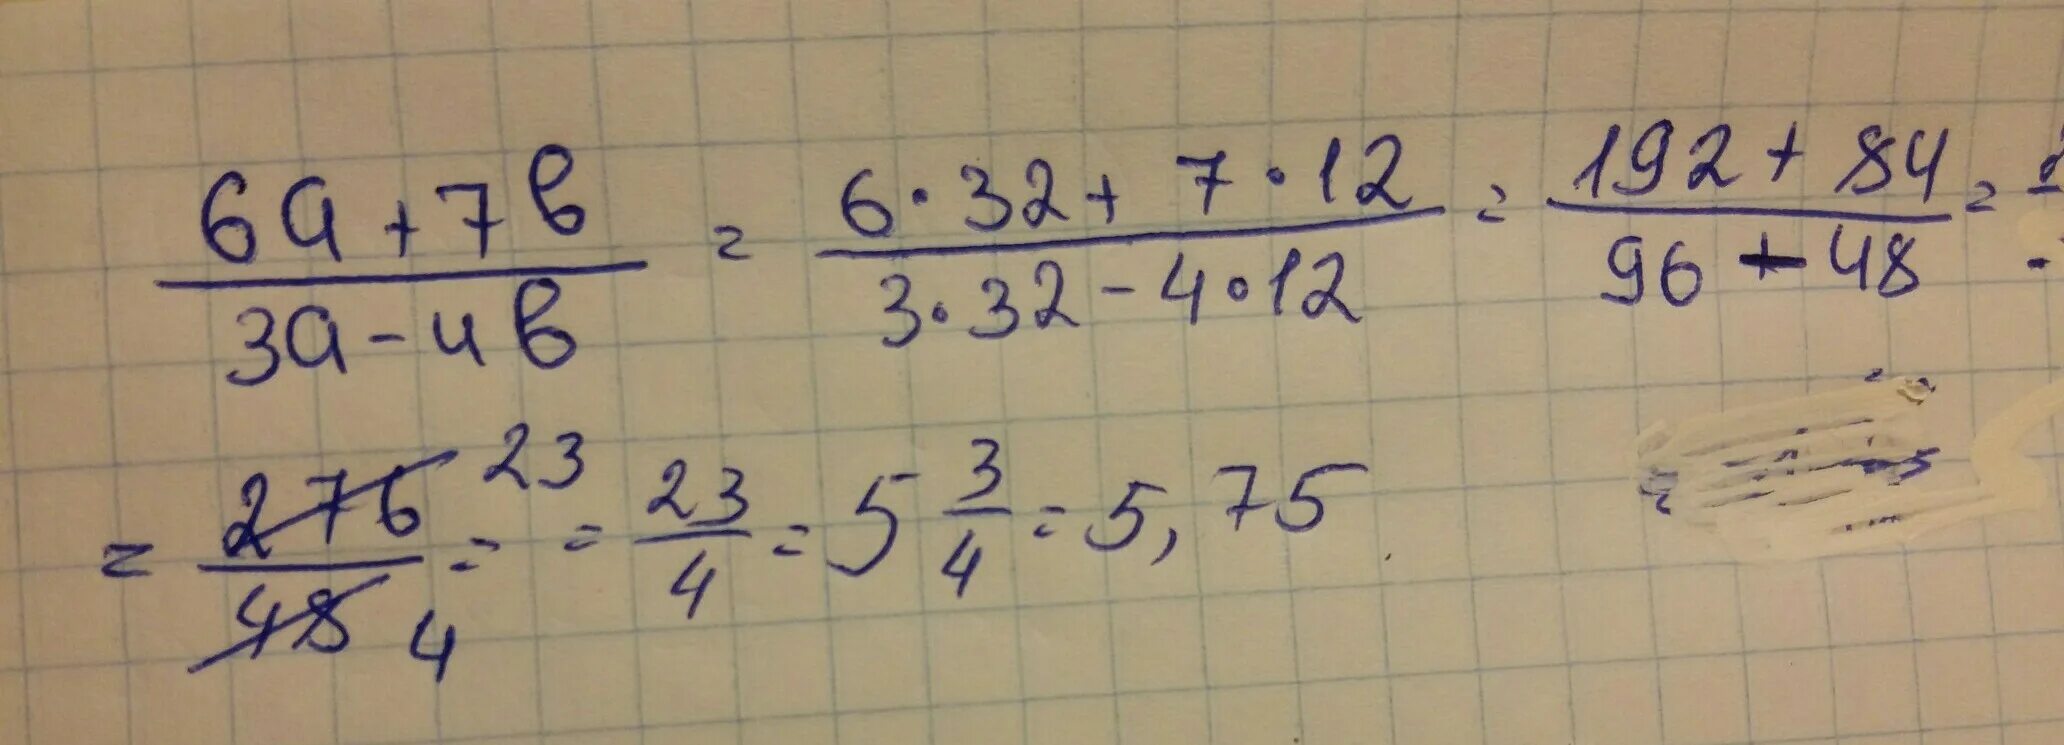 (6a + 7в)/(3a - 4в) = (6·32 + 7·12)/(3·32 - 4·12) = (192 + 84)/(96 - 48) =
= 276/48 23/4 = = 23/4 = 5 3/4 = 5,75